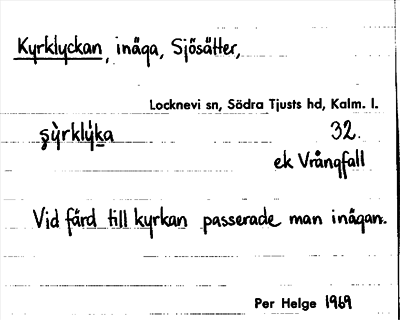 Kyrklyckan, inäga, Sjösätter,
Locknevi sn, Södra Tjusts hd, Kalm. l.
s̨ỳrklýka 32.
ek Vrångfall
Vid färd till kyrkan passerade man inägan.
Per Helge 1969